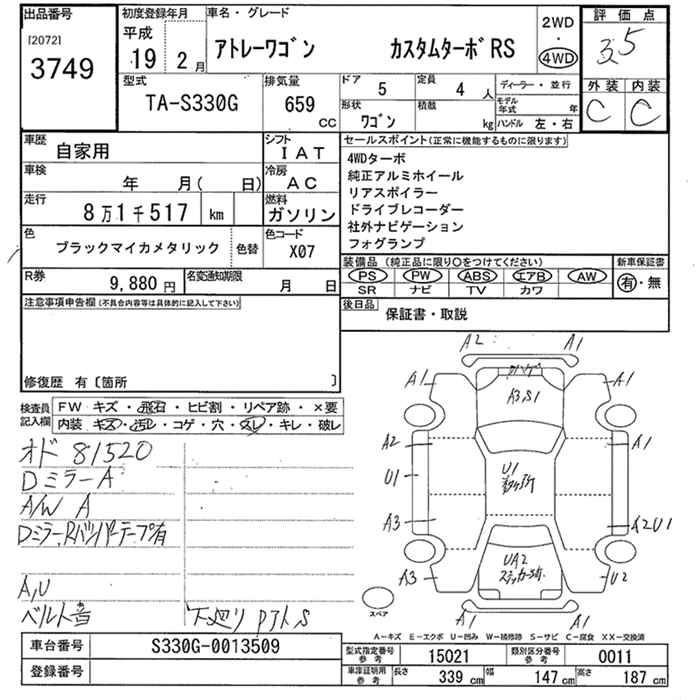 出品番号
[2072]
3749
初度登録年月
平成
19 2月
車名・グレード
アトレーワゴン カスタムターボRS
2WD
・
4WD
評価点
3.5
外装 内装
C C
型式
TA-S330G
排気量
659
CC
ドア 5
定員 4 人
ディーラー・並行
形状
ワゴン
積載
kg
モデル年式 年
ハンドル 左・右
車歴
自家用
シフト
IAT
車検
年 月( 日)
冷房
AC
走行
8万1千517 km
燃料
ガソリン
色
ブラックマイカメタリック
色替
色コード
X07
R券
9,880円
名変通知期限
月 日
セールスポイント(正常に機能するものに限ります)
4WDターボ
純正アルミホイール
リアスポイラー
ドライブレコーダー
社外ナビゲーション
フォグランプ
装備品(純正品に限り○をつけてください)
PS PW ABS エアB AW
SR ナビ TV カワ
新車保証書
有・無
後日品
保証書・取説
注意事項申告欄(不具合内容等は具体的に記入して下さい)
修復歴 有〔箇所 〕
検査員記入欄
FW キズ・飛石・ヒビ割・リペア跡・×要
内装 キズ・汚レ・コゲ・穴・スレ・キレ・破レ
オド 81520
DミラーA
A/W A
Dミラー、Rバンパーテープ有
A,U
ベルト音
下廻り
A2 A1
A1 A3,S1 A1
A2 A1
U1 U1
A3 A2U1
A3 UA2 U2
A1 A1
スペア
A－キズ E－エクボ U－凹み W－補修跡 S－サビ C－腐食 XX－交換済
車台番号
S330G-0013509
登録番号
型式指定番号参考
15021
類別区分番号参考
0011
車庫証明用参考
長さ 339 cm
幅 147 cm
高さ 187 cm